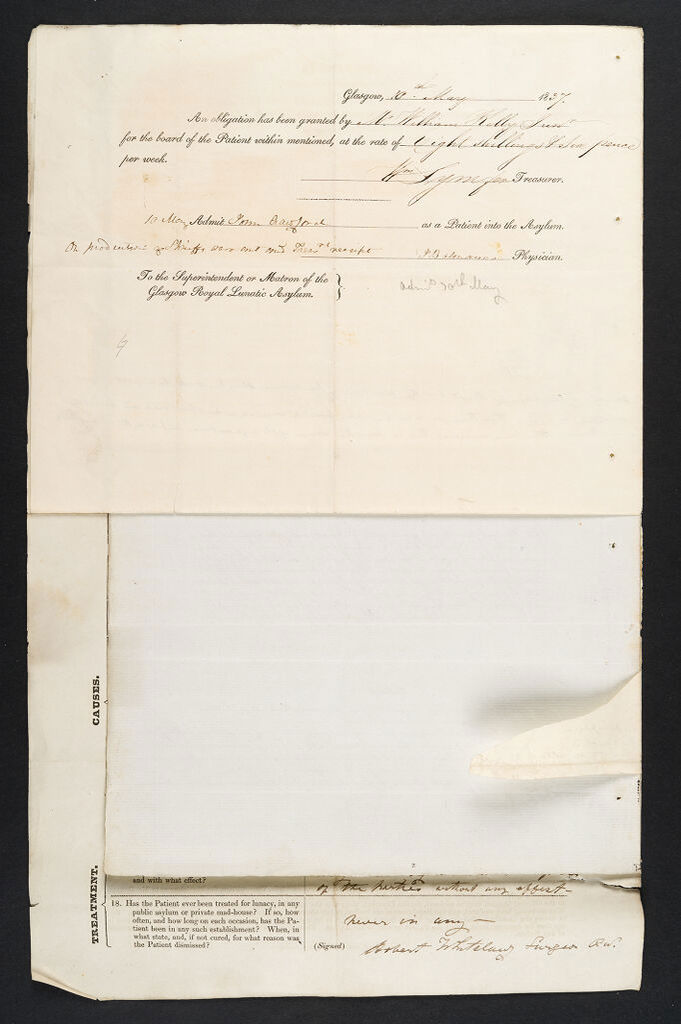 Glasgow, 10th May 1837.
An obligation has been granted by Mr William Kelly Junr
for the board of the Patient within mentioned, at the rate of Eight shillings & Six pence
per week.
Wm Treasurer.
10 May Admit John Crawford as a Patient into the Asylum.
On production of Sheriffs warrant and Treasrs receipt Physician.
To the Superintendent or Matron of the
Glasgow Royal Lunatic Asylum. }
admd 30th May
CAUSES.
TREATMENT.
and with what effect?
of the without any effect
18. Has the Patient ever been treated for lunacy, in any
public asylum or private mad-house? If so, how
often, and how long on each occasion, has the Pa-
tient been in any such establishment? When, in
what state, and, if not cured, for what reason was
the Patient dismissed?
never in any
(Signed) Robert Whitelaw Surgeon